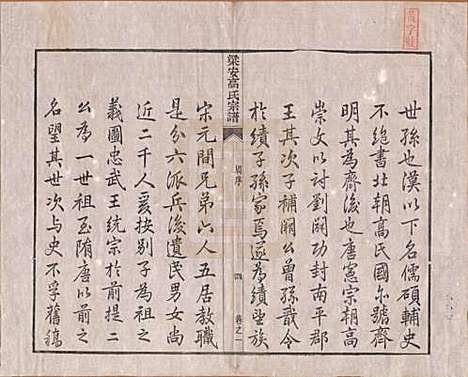 世孫也漢以下名儒碩輔史
不絶書北朝高氏國尒號齊
明其為齊後也唐憲宗朝高
崇文以討劉闢功封南平郡
王其次子補闕公曾孫戩令
於績子孫家焉遂為績望族
梁安高氏宗譜
序
卷之一
宋元間兄弟六人五居教職
是分六派兵後遺民男女尚
近二千人爰按別子為祖之
義國忠武王統宗於前提二
公為一世祖至隋唐以前之
名望其世次与史不孚舊稿